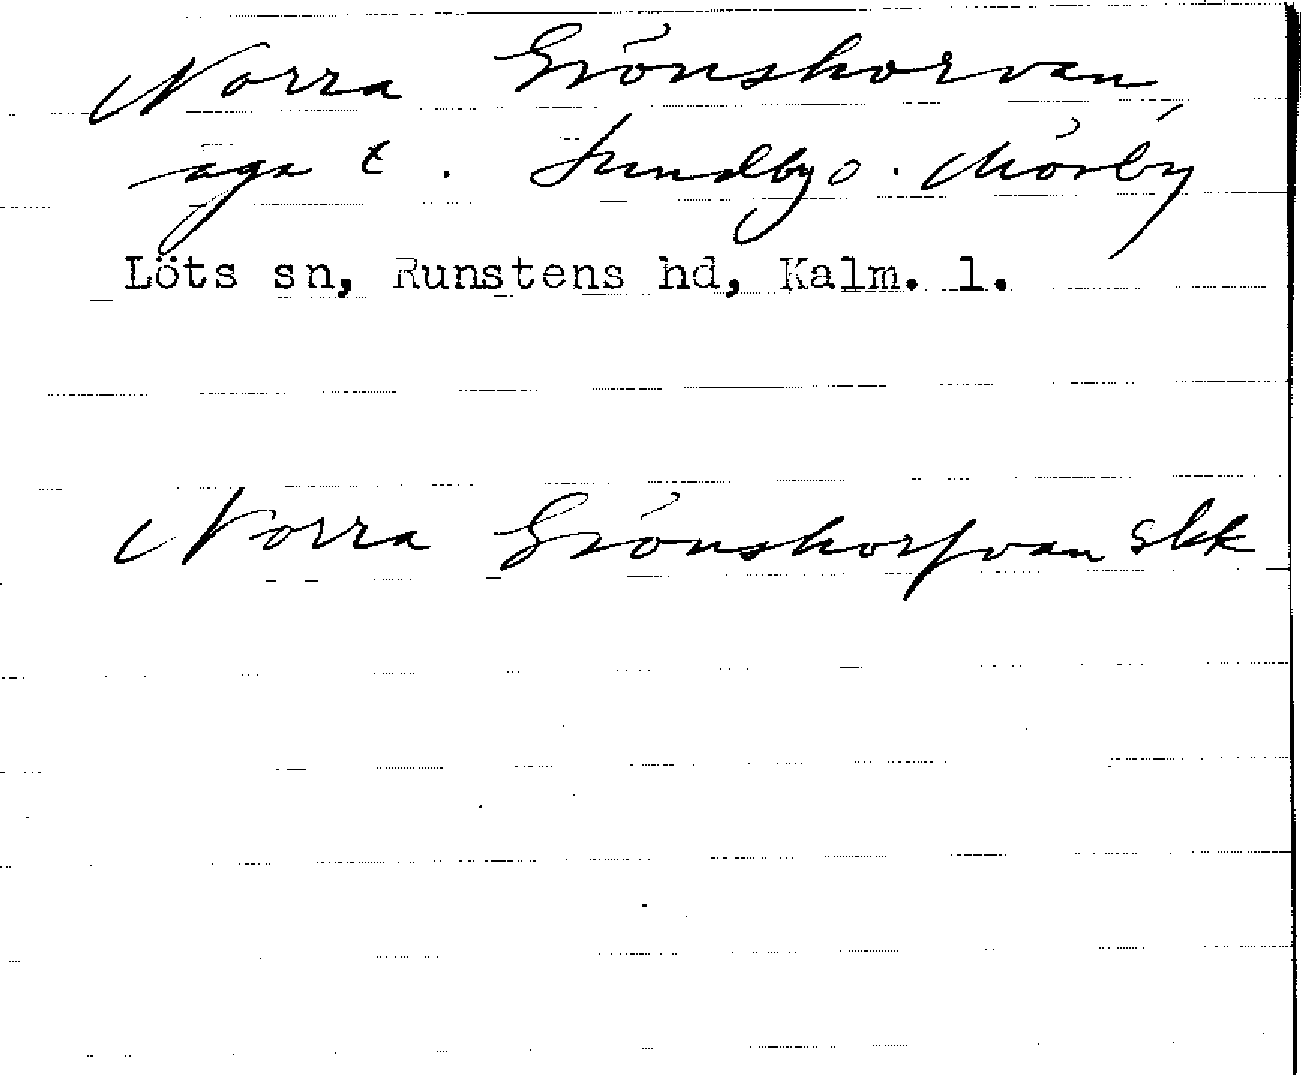 Norra Grönskorvan,
äga t. Sundby o. Mörby
Löts sn, Runstens hd, Kalm. l.
Norra Grönskorfvan skk